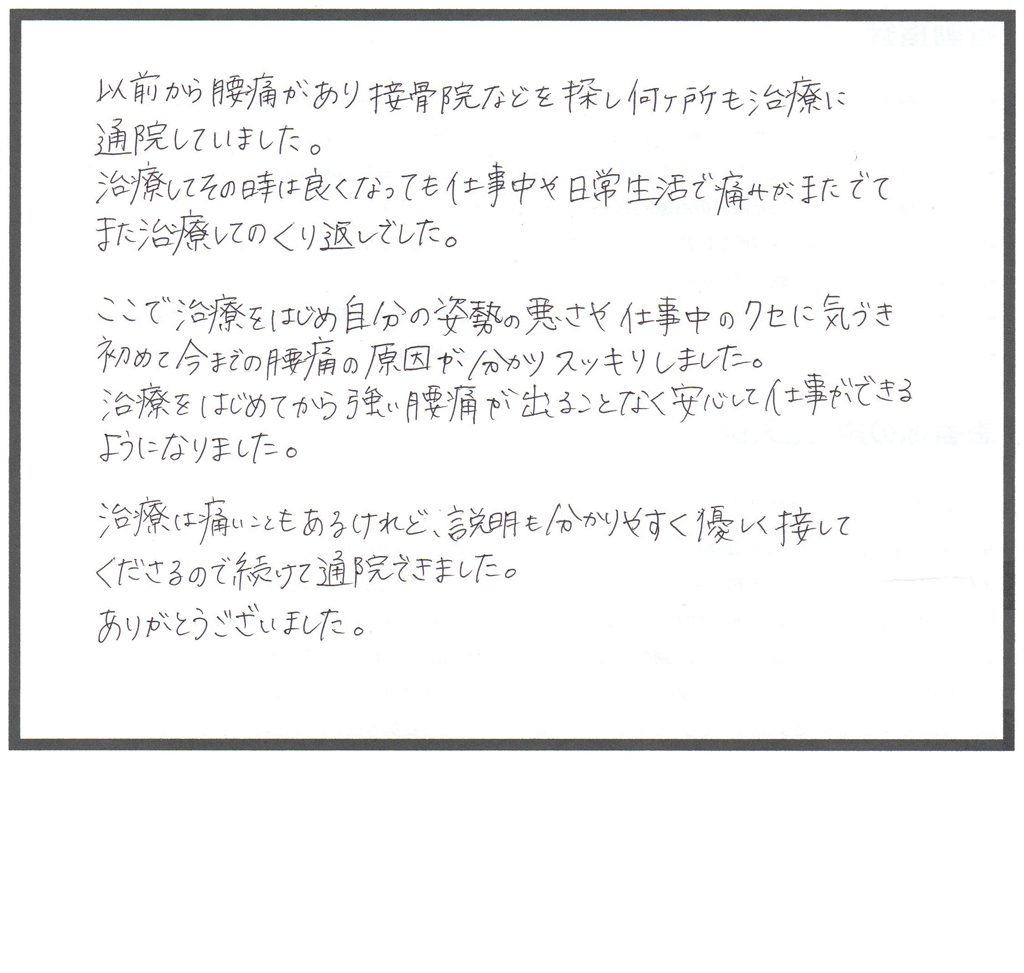 以前から腰痛があり接骨院などを探し何ヶ所も治療に
通院していました。
治療してその時は良くなっても仕事中や日常生活で痛みがまたでて
また治療してのくり返しでした。
ここで治療をはじめ自分の姿勢の悪さや仕事中のクセに気づき
初めて今までの腰痛の原因が分かりスッキリしました。
治療をはじめてから強い腰痛が出ることなく安心して仕事ができる
ようになりました。
治療は痛いこともあるけれど、説明も分かりやすく優しく接して
くださるので続けて通院できました。
ありがとうございました。